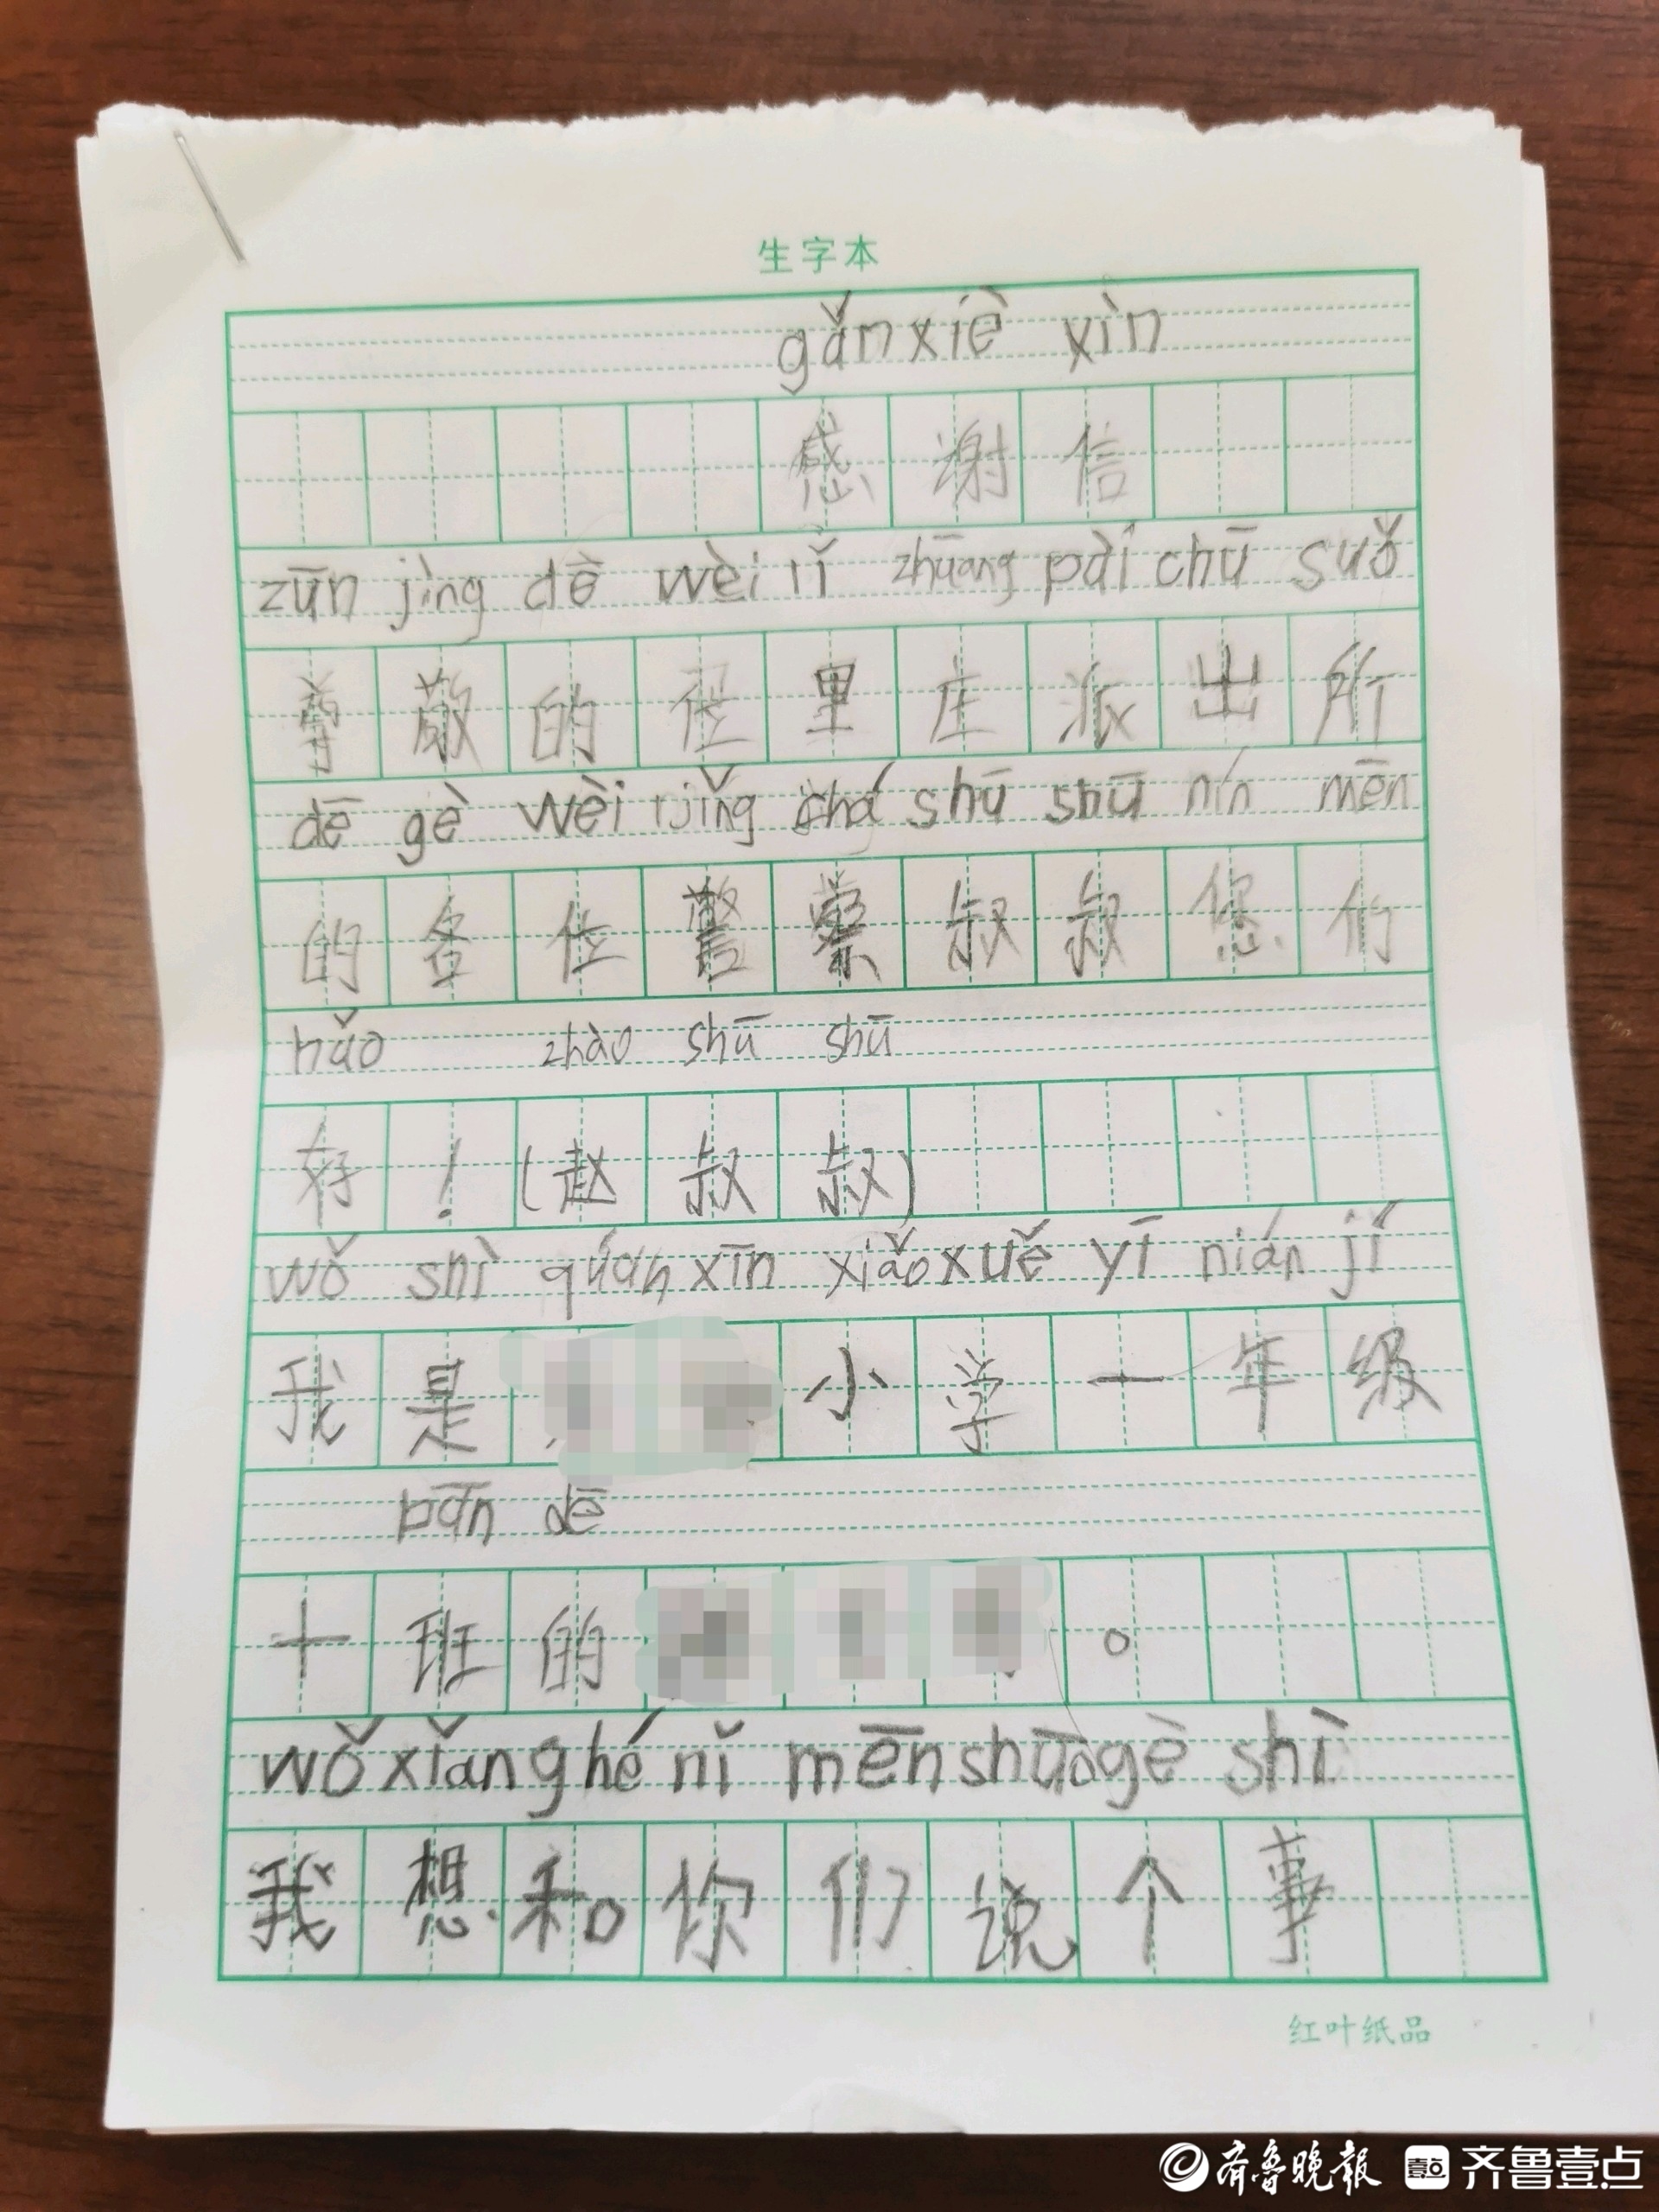 生字本
gǎn xiè xìn
感谢信
zūn jìng dē wèi lǐ zhūang pài chū suǒ
尊敬的位里庄派出所
dē gè wèi jǐng chá shū shū nín mēn
的各位警察叔叔您们
hǎo zhào shū shū
好！(赵叔叔)
wǒ shì qúan xīn xiǎo xuě yī nián jí
我是小学一年级
pān dē
十班的。
wǒ xiǎng hé nǐ mēn shūo gè shì
我想和你们说个事
红叶纸品
齐鲁晚报 壹点 齐鲁壹点